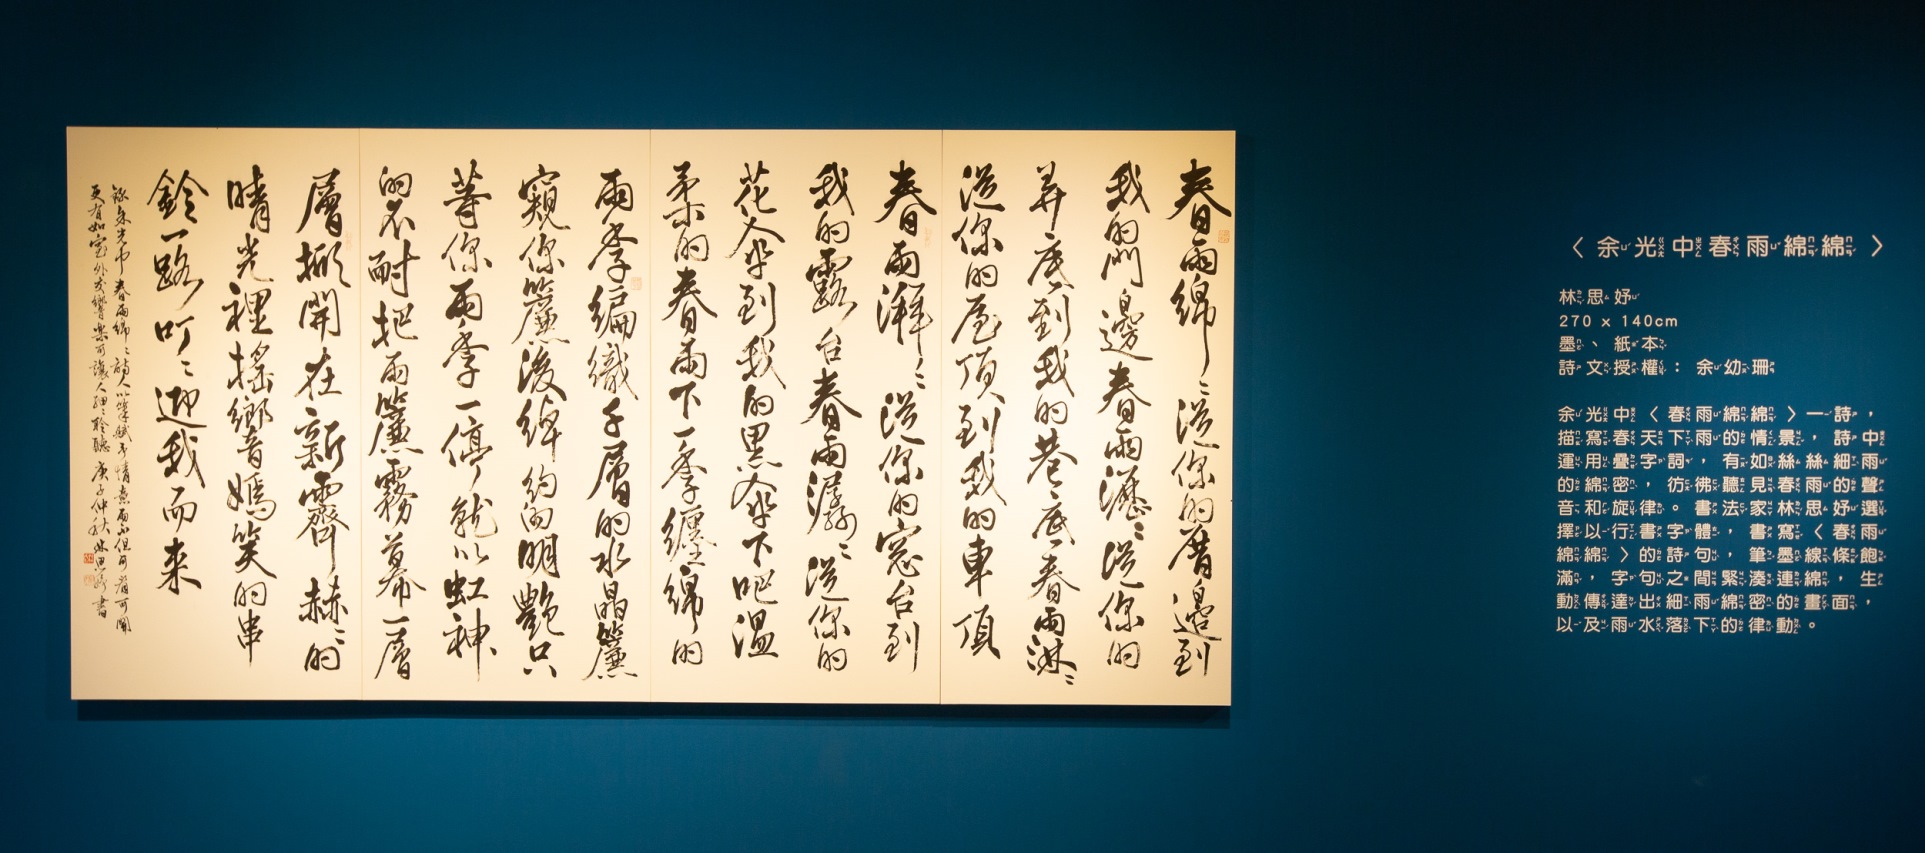 春雨綿〻從你的厝邊到
我的門邊春雨瀝〻從你的
弄底到我的巷底春雨淋〻
從你的屋頂到我的車頂
春雨〻從你的窗台到
我的露台春雨潺〻從你的
花傘到我的黑傘下吧溫
柔的春雨下一季纏綿的
雨季編織千層的水晶簾
窺你簾後綽約的明艷只
等你雨季一停就以虹神
的不耐把雨簾霧幕一層
層掀開在新霽赫〻的
晴光裡搖響嫣笑的串
鈴一路叮〻迎我而來
錄余光中春雨綿〻詩人以筆賦予情意雨不但可看可聞
更有如窗外交響樂可讓人細〻聆聽 庚子仲秋林思妤書
〈余光中春雨綿綿〉
林思妤
270 x 140cm
墨、紙本
詩文授權：余幼珊
余光中〈春雨綿綿〉一詩，
描寫春天下雨的情景，詩中
運用疊字詞，有如絲絲細雨
的綿密，彷彿聽見春雨的聲
音和旋律。書法家林思妤選
擇以行書字體，書寫〈春雨
綿綿〉的詩句，筆墨線條飽
滿，字句之間緊湊連綿，生
動傳達出細雨綿密的畫面，
以及雨水落下的律動。